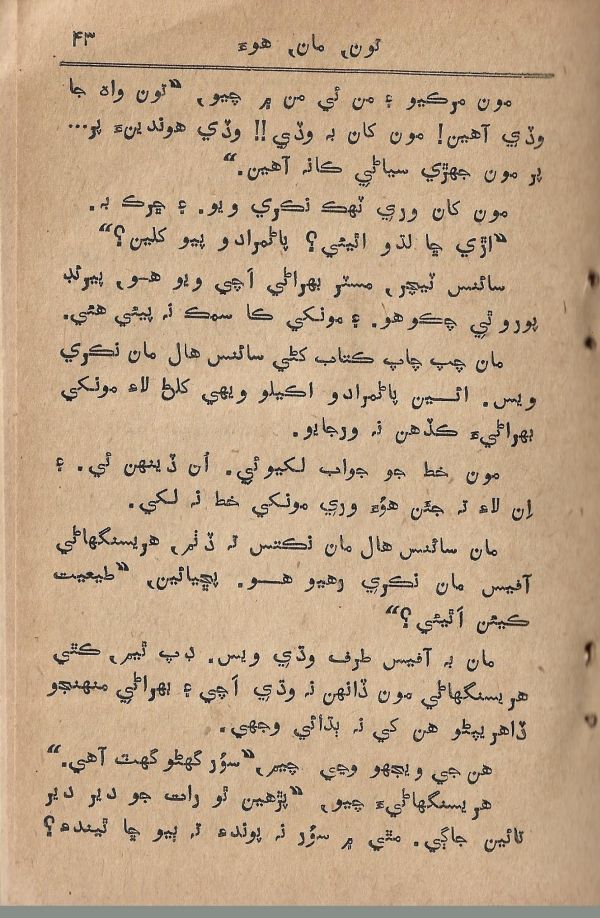 تون، مان، هوءَ ۴۳
مون مرڪيو ۽ من ئي من ۾ چيو، “تون واھ جا
وڏي آهين! مون کان بہ وڏي!! وڏي هوندينءَ پر...
پر مون جهڙي سياڻي ڪانہ آهين.“
مون کان وري ٽهڪ نڪري ويو. ۽ ڇرڪ بہ.
“اڙي ڇا لڌو اٿيئي؟ پاڻمرادو پيو کلين؟“
سائنس ٽيچر، مسٽر بهراڻي اچي ويو هو، پيرئڊ
پورو ٿي چڪو هو. ۽ مونکي ڪا سمڪ نہ پيئي هئي.
مان چپ چاپ ڪتاب کڻي سائنس هال مان نڪري
ويس. ائين پاڻمرادو اڪيلو ويهي کلڻ لاءِ مونکي
بهراڻيءَ ڪڏهن نہ ورجايو.
مون خط جو جواب لکيو ئي. اُن ڏينهن ئي. ۽
اِن لاءِ تہ جيئن هوءَ وري مونکي خط نہ لکي.
مان سائنس هال مان نڪتس تہ ڏٺم، هريسنگهاڻي
آفيس مان نڪري رهيو هو. پڇيائين، “طبيعت
ڪيئن اَٿيئي؟“
مان بہ آفيس طرف وڌي ويس. ڊپ ٿيم، ڪٿي
هريسنگهاڻي مون ڏانهن نہ وڌي اچي ۽ بهراڻي منهنجو
ڏاهرپڻو هن کي نہ ٻڌائي وجهي.
هن جي ويجهو وڃي چيم، “سُور گهڻو گهٽ آهي.“
هريسنگهاڻيءَ چيو، “پڙهين ٿو رات جو دير دير
تائين جاڳي. مٿي ۾ سُور نہ پوندءِ تہ ٻيو ڇا ٿيندءِ؟